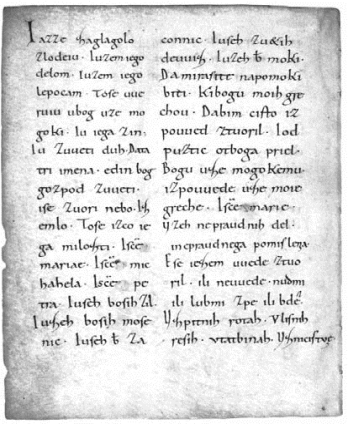 Iazze zaglagolo
zlodeiu. Iuzem iego
delom. Iuzem iego
lepocam. Tose uue
ruiu ubog uze mo
goki. Iu iega zin.
Iu zuueti duh. Data
tri imena. edin bog
gozpod zuueti.
ise zuori nebo. Iz
emlo. Tose izco ie
ga milozti. Iscē
mariae. Iscē mic
hahela. Iscē pe
tra. Iuseh bosih zil.
Iuzeh bosih mose
nic. Iuseh b̄ za
connic. Iuseh zuetih
devviz. Iuzeh b̄ moki.
Da mirasite napomoki
biti. Kibogu moih gre
chou. Dabim cisto iz
pouued ztuoril. Iod
puztic otboga priel.
Bogu uze mogokemu
izpouuede. uze moie
greche. Iscē marie.
vzeh nepraudnih del.
inepraudnega pomislena.
Ese iezem uuede ztuo
ril. ili neuuede. nudmi
ili lubmi zpe ili bdē
Vzpitnih rotah. Vlisnih
resih. Vtatbinah. Vznicistve